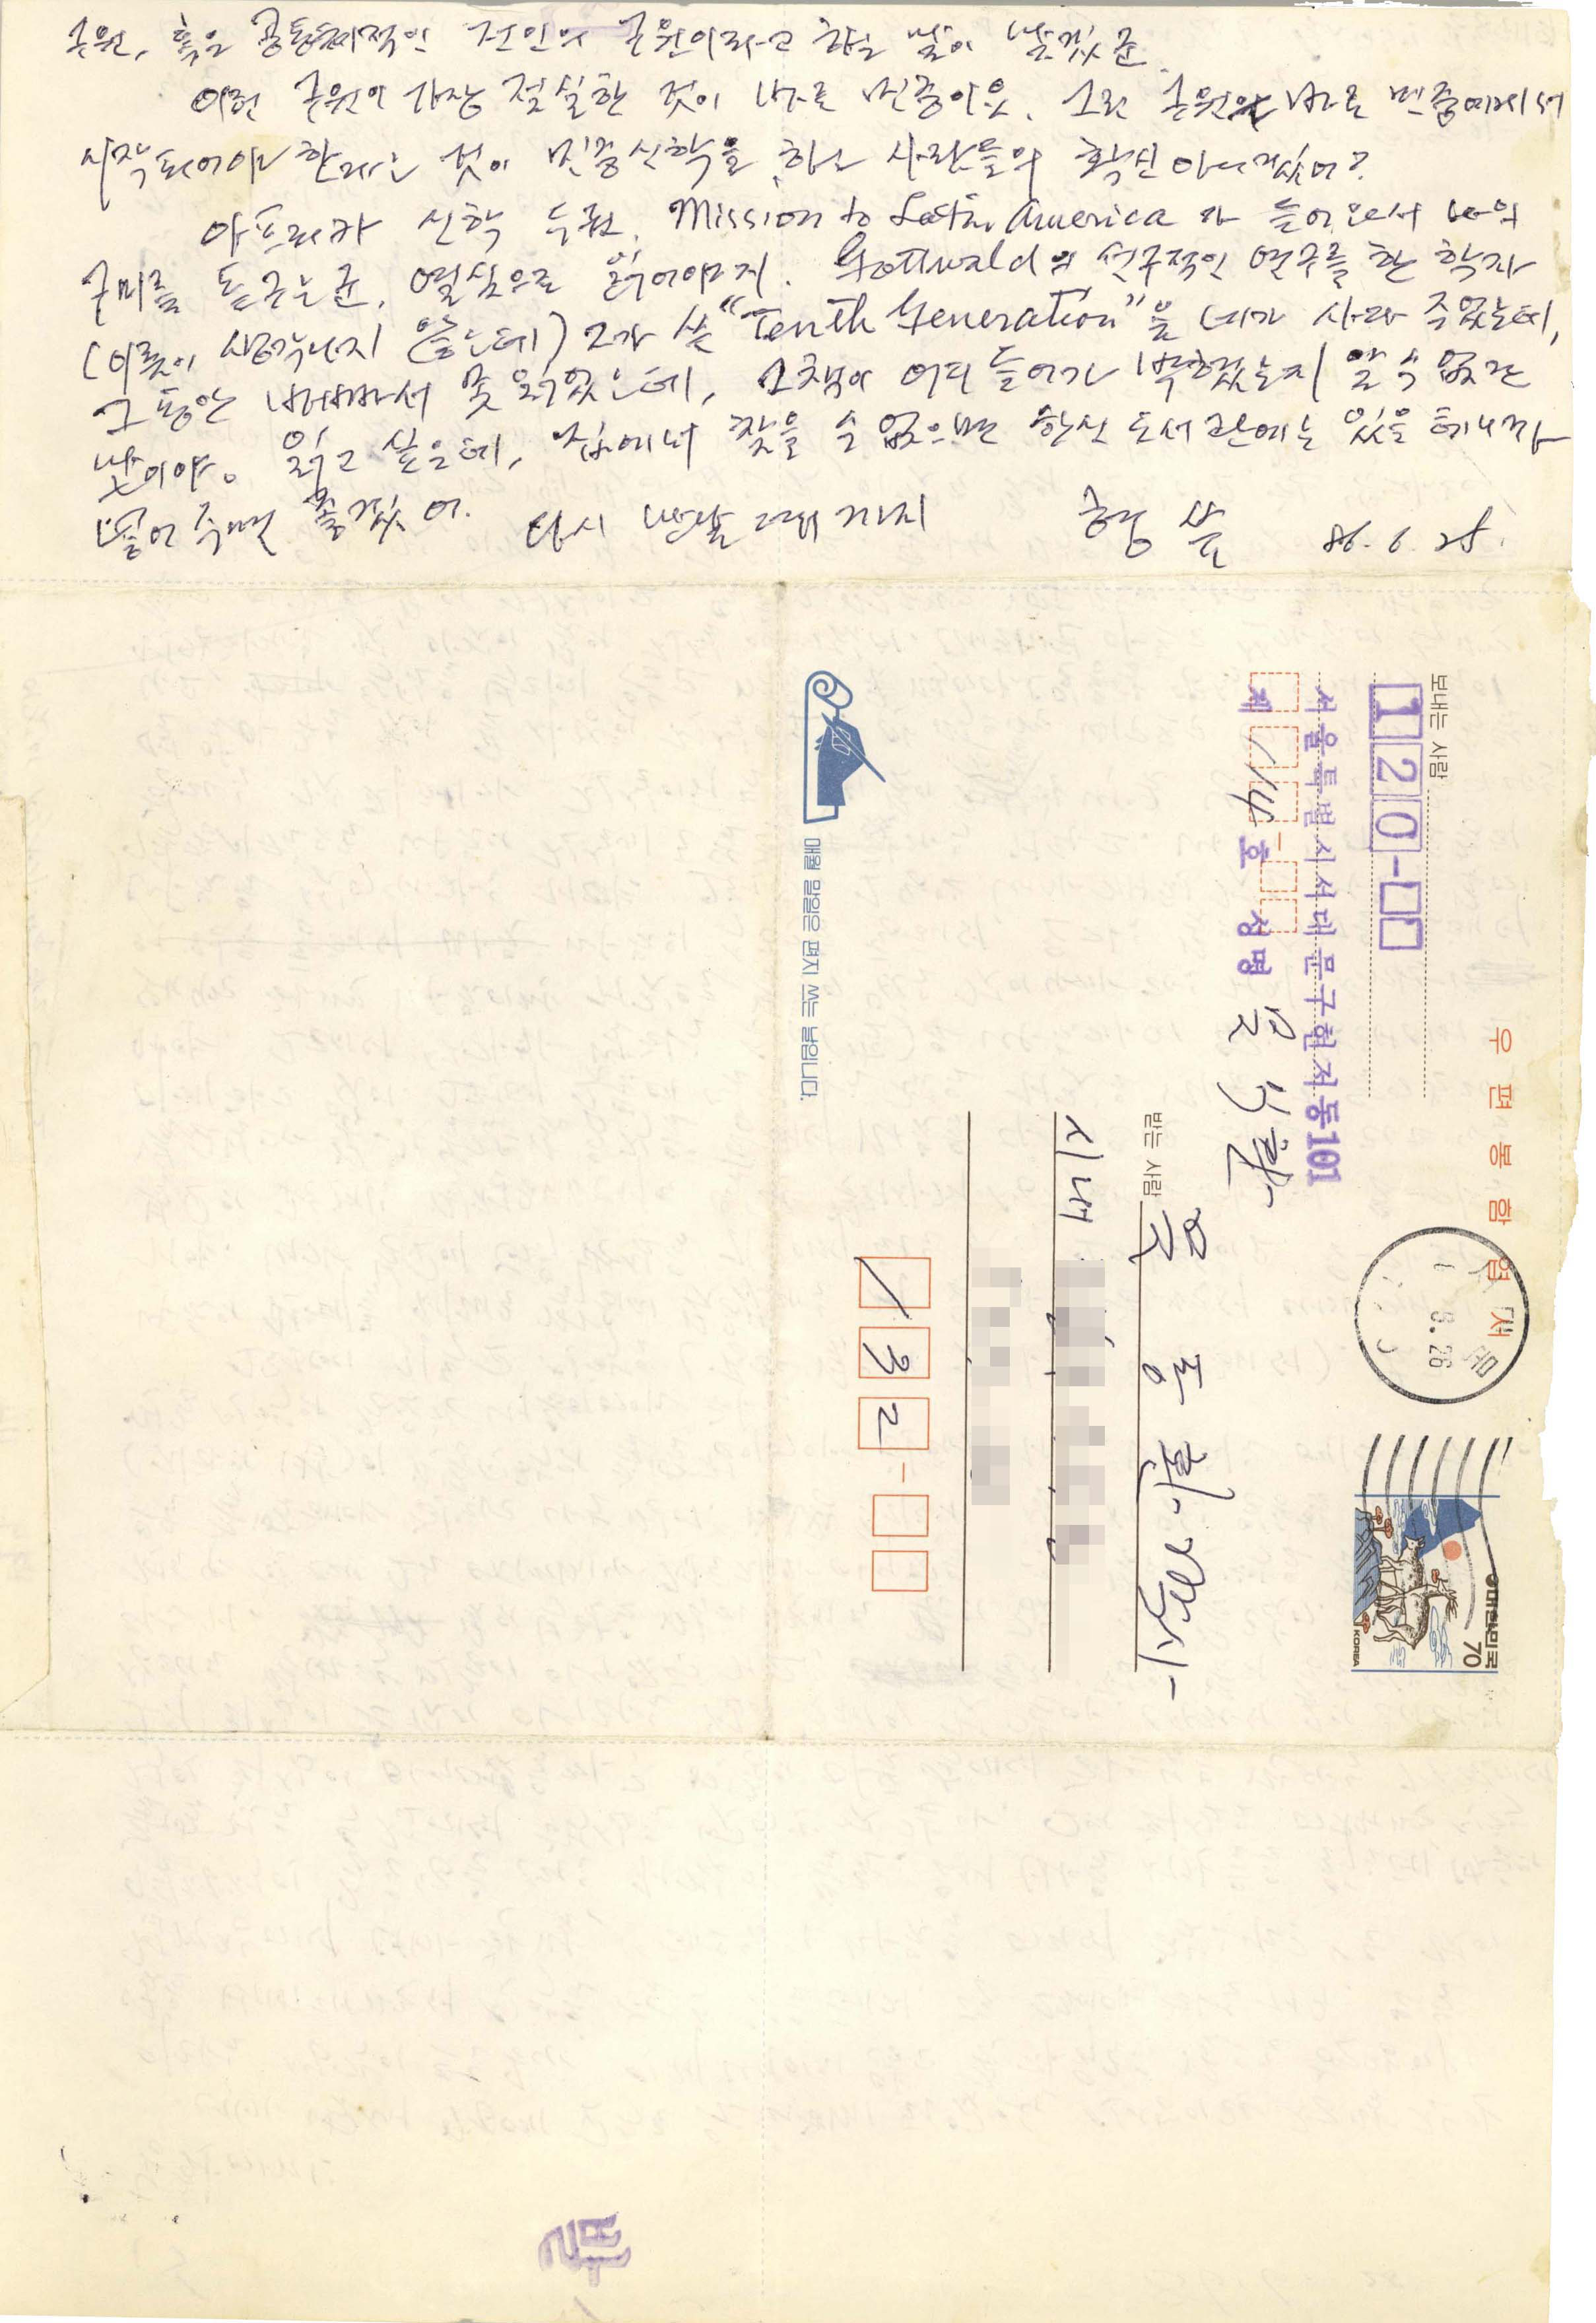 구원, 혹은 공동체적인 전인의 구원이라고 하는 말이 낫겠군.
이런 구원이 가장 절실한 것이 바로 민중이오. 그런 구원은 바로 민중에게서
시작되어야 한다는 것이 민중신학을 하는 사람들의 확신 아니겠어?
아프리카 신학 두권, Mission to Latin America 가 들어와서 나의
구미를 돋구는군. 열심으로 읽어야지. Gottwald의 선구적인 연구를 한 학자
(이름이 생각나지 않는데) 그가 쓴 "Tenth Generation"을 네가 사다 주었는데,
그동안 바빠서 못 읽었는데, 그 책이 어디 들어가 박혔는지 알 수 없는
읽고 싶은데, 집에서 찾을 수 없으면 한신 도서관에는 있을 테니까
넣어 주면 좋겠어. 다시 만날 때까지 형 씀 86. 6. 25.
우편봉함엽서
보내는 사람
120-
서울특별시서대문구현저동101
제 114 호 성명 문익환
대한민국
70
KOREA
6.26
받는 사람
문동환 박사
시내
132-
매월 말일은 편지 쓰는 날입니다.